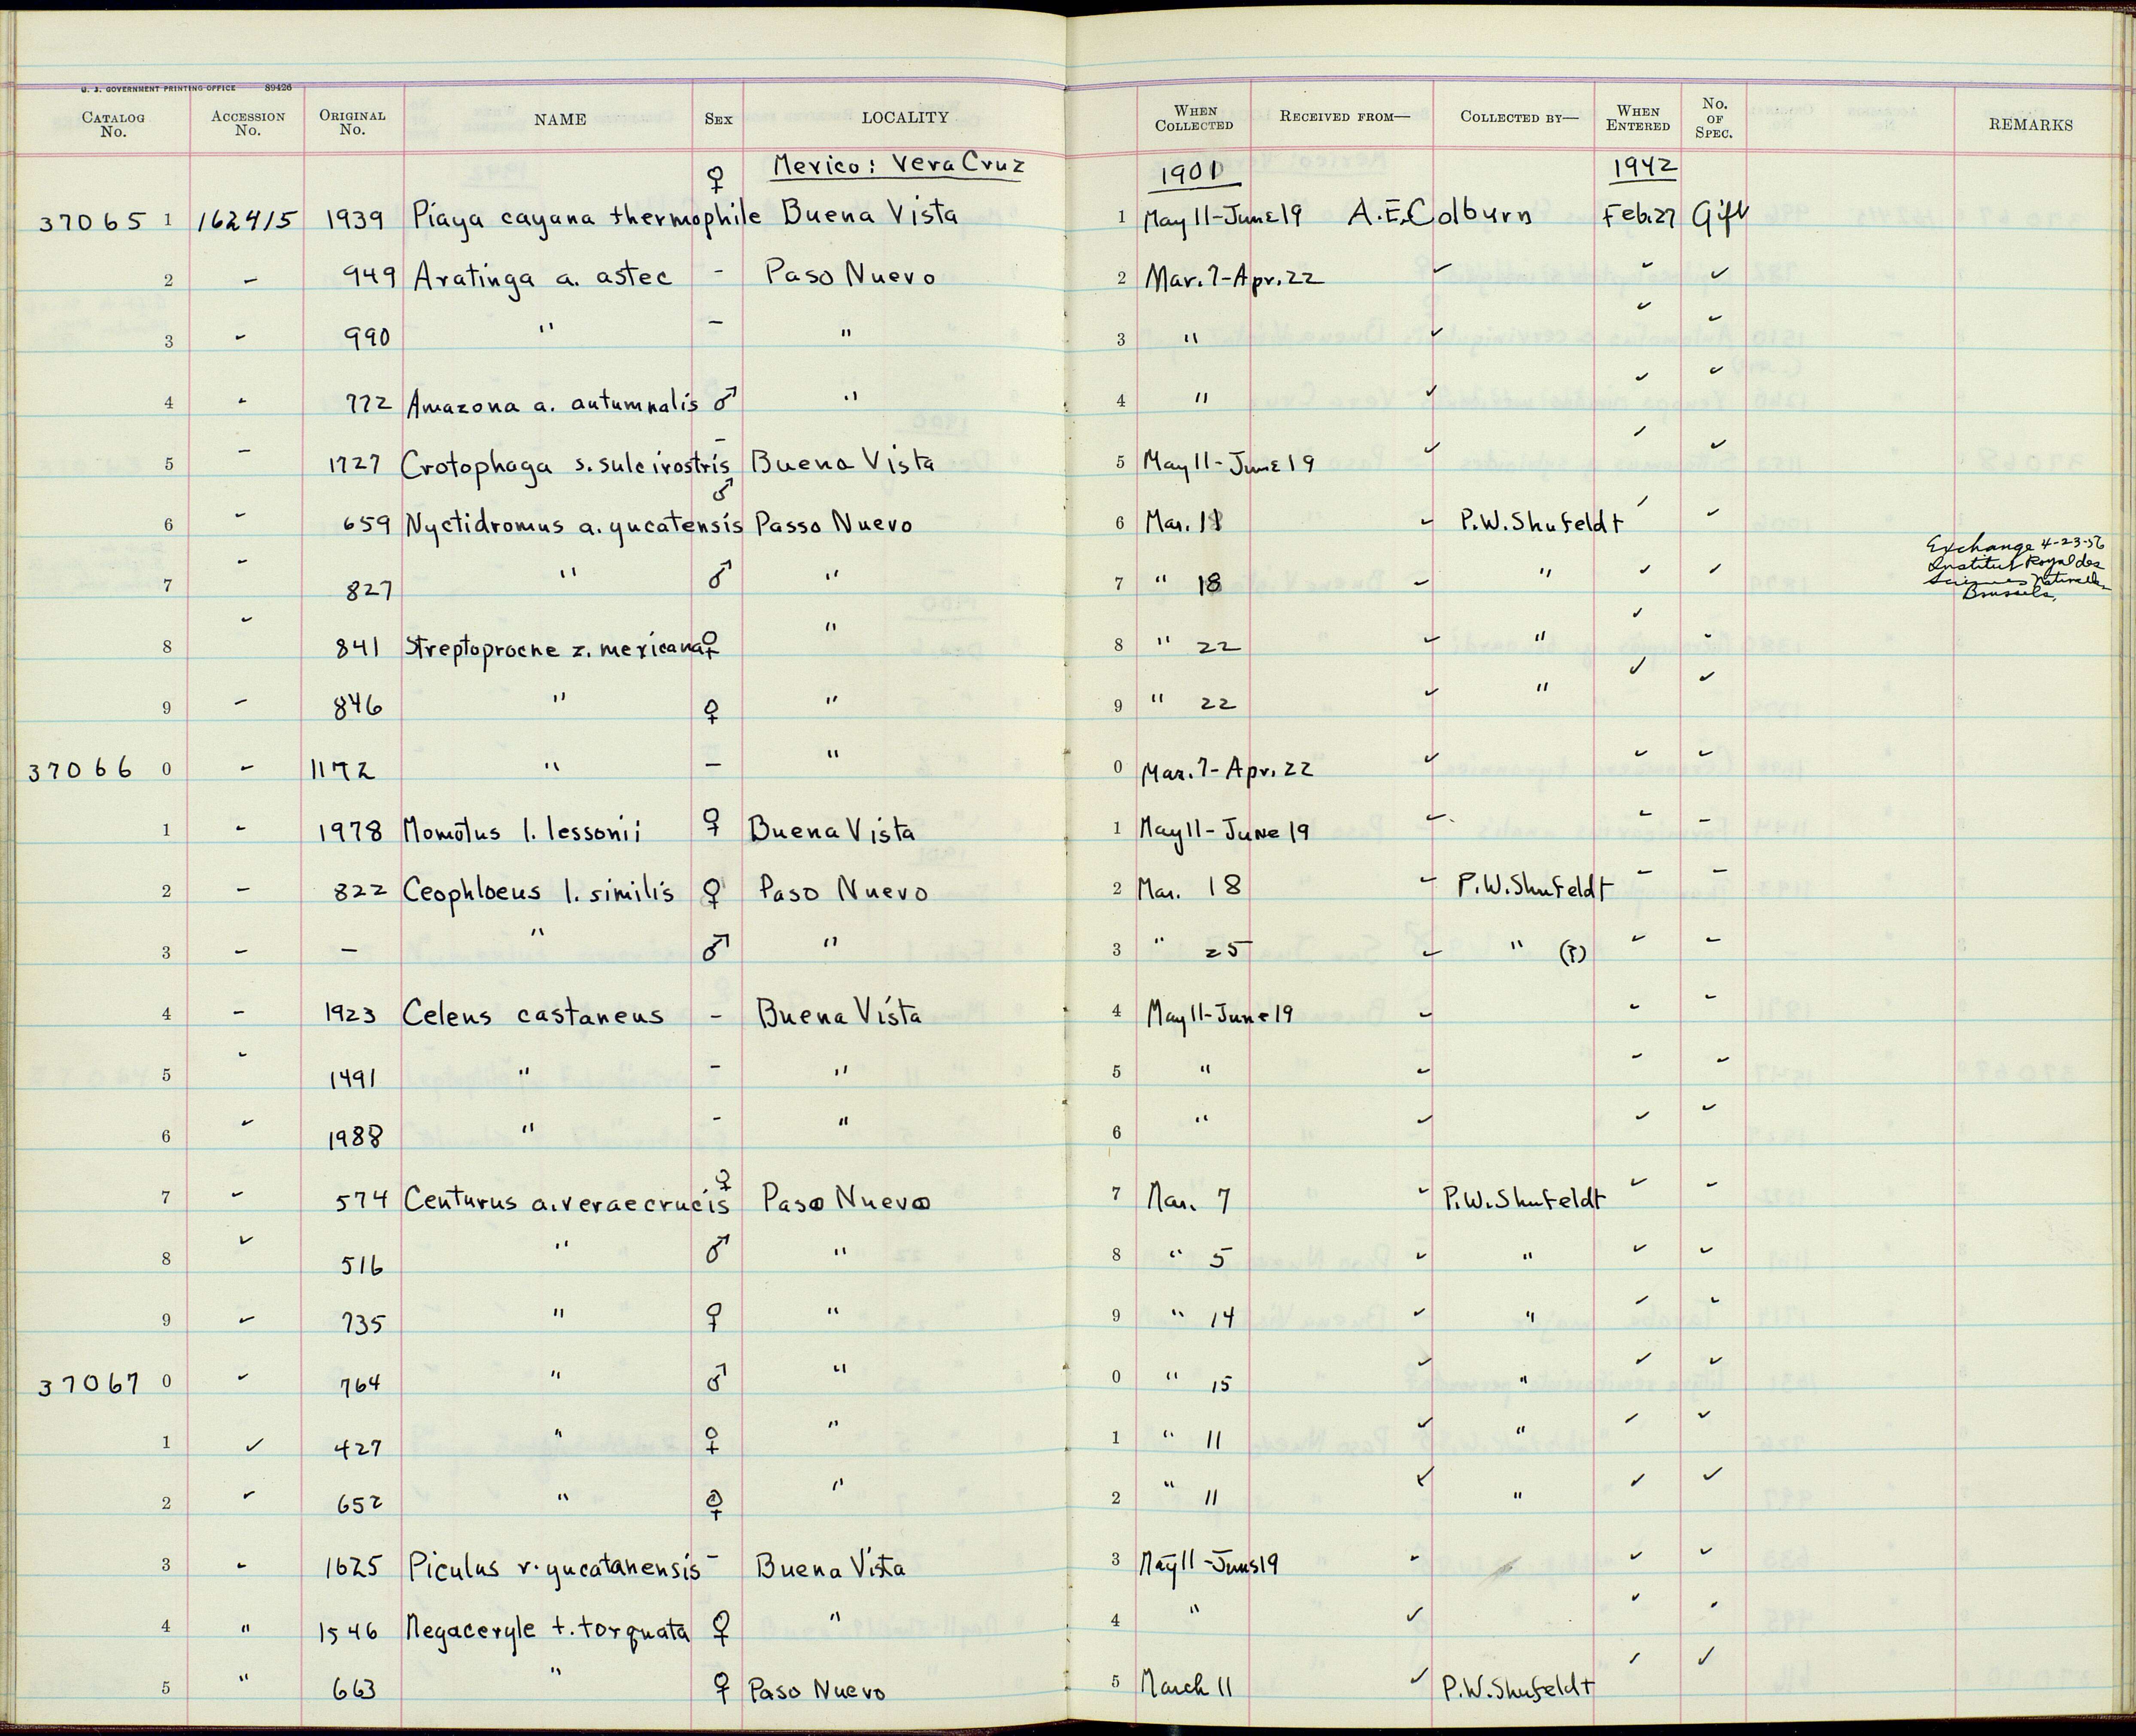 U. S. GOVERNMENT PRINTING OFFICE 89426
CATALOG No. ACCESSION No. ORIGINAL No. NAME SEX LOCALITY WHEN COLLECTED RECEIVED FROM— COLLECTED BY— WHEN ENTERED No. OF SPEC. REMARKS
♀ Mexico: Vera Cruz 1901 1942
37065 1 162415 1939 Piaya cayana thermophile Buena Vista 1 May 11-June 19 A.E. Colburn Feb. 27 Gift
2 - 949 Aratinga a. astec - Paso Nuevo 2 Mar. 7-Apr. 22 ✓ ✓ ✓
3 - 990 " - " 3 " ✓ ✓ ✓
4 - 772 Amazona a. autumnalis ♂ " 4 " ✓ ✓ ✓
5 - 1727 Crotophaga s. sulcirostris - Buena Vista 5 May 11-June 19 ✓ ✓ ✓
6 - 659 Nyctidromus a. yucatensis ♂ Passo Nuevo 6 Mar. 11 ✓ P.W. Shufeldt ✓ ✓
7 - 827 " ♂ " 7 " 18 ✓ " ✓ ✓ Exchange 4-23-56
Institut Royal des
Sciences Naturelles
Brussels.
8 ✓ 841 Streptoprocne z. mexicana ♀ " 8 " 22 ✓ " ✓ ✓
9 - 846 " ♀ " 9 " 22 ✓ " ✓ ✓
37066 0 - 1172 " - " 0 Mar. 7-Apr. 22 ✓ ✓ ✓
1 - 1978 Momotus l. lessonii ♀ Buena Vista 1 May 11-June 19 ✓ - -
2 - 822 Ceophloeus l. similis ♀ Paso Nuevo 2 Mar. 18 ✓ P.W. Shufeldt - -
3 - - " ♂ " 3 " 25 ✓ " (?) ✓ -
4 - 1923 Celeus castaneus - Buena Vista 4 May 11-June 19 ✓ - -
5 ✓ 1491 " - " 5 " ✓ - ✓
6 ✓ 1988 " - " 6 " ✓ ✓ ✓
7 ✓ 574 Centurus a. veraecrucis ♀ Paso Nuevo 7 Mar. 7 ✓ P.W. Shufeldt ✓ ✓
8 ✓ 516 " ♂ " 8 " 5 ✓ " ✓ ✓
9 ✓ 735 " ♀ " 9 " 14 ✓ " ✓ ✓
37067 0 ✓ 764 " ♂ " 0 " 15 ✓ " ✓ ✓
1 ✓ 427 " ♀ " 1 " 11 ✓ " ✓ ✓
2 ✓ 652 " ♀ " 2 " 11 ✓ " ✓ ✓
3 - 1625 Piculus r. yucatanensis - Buena Vista 3 May 11-June 19 ✓ ✓ ✓
4 " 1546 Megaceryle t. torquata ♀ " 4 " ✓ ✓ ✓
5 " 663 " ♀ Paso Nuevo 5 March 11 ✓ P.W. Shufeldt ✓ ✓